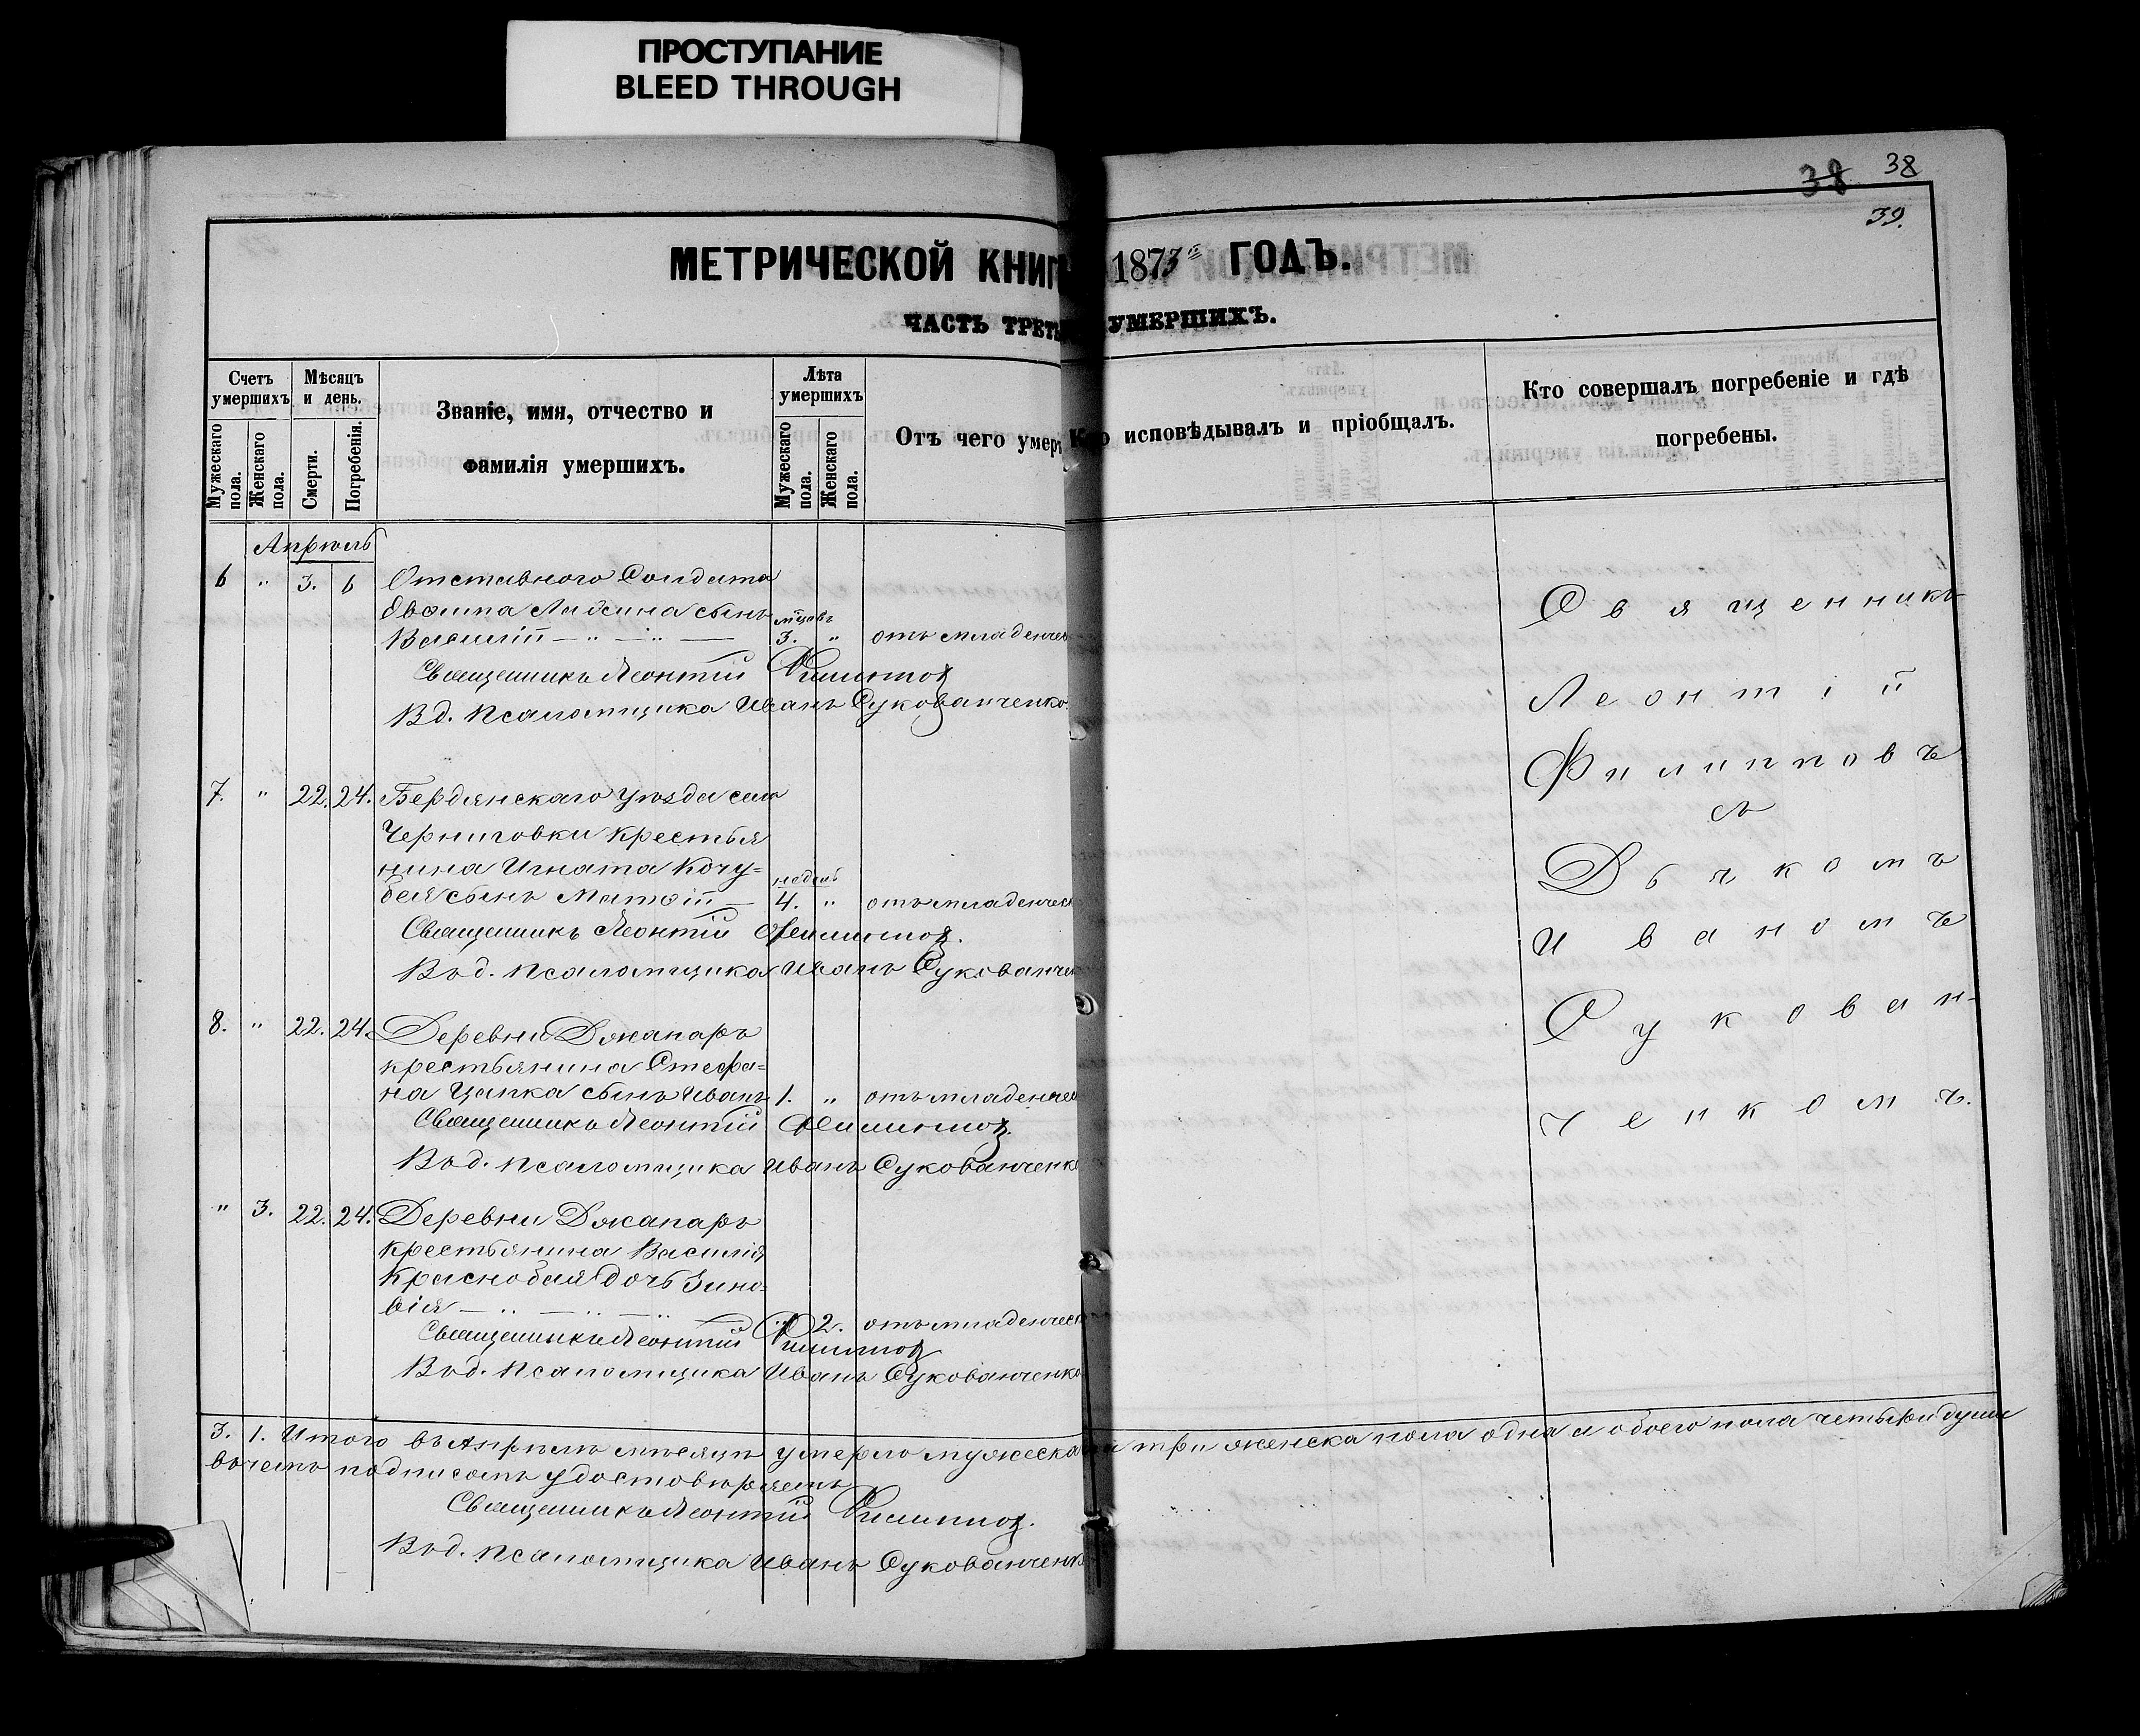 ПРОСТУПАНИЕ
BLEED THROUGH
38 38
39.
МЕТРИЧЕСКОЙ КНИГ 1873 ГОДЪ.
ЧАСТЬ ТРЕТЬ УМЕРШИХЪ.
Счетъ умершихъ
Мужескаго пола.
Женскаго пола.
Мѣсяцъ и день.
Смерти.
Погребенія.
Званіе, имя, отчество и
фамилія умершихъ.
Лѣта умершихъ
Мужескаго пола.
Женскаго пола.
Отъ чего умер
Кто исповѣдывалъ и пріобщалъ.
Кто совершалъ погребеніе и гдѣ
погребены.
Апрѣль
6 " 3. 6 Отставнаго Солдата
сынъ мцовъ
Василій — " — " — 3. " отъ младенчес
Священникъ Леонтій Филиппов
В д. псаломщика Иванъ Сукованченко
7. " 22. 24. Бердянскаго уѣзда села
Черниговки крестья
нина Игната Кочу=
бея сынъ Матѳій — недѣль 4. " отъ младенчес
Священникъ Леонтій Филиппов.
Въ д. псаломщика Иванъ Сукованчен
8. " 22. 24. Деревни Джапаръ
крестьянина Стефа=
на Цапка сынъ Иванъ 1. " отъ младенчес
Священникъ Леонтій Филиппов.
Въ д. псаломщика Иванъ Сукованченк
" 3. 22. 24. Деревни Джапаръ
крестьянина Василія
Краснобая дочь Зино=
вія — " — " — " 2. отъ младенчес
Священникъ Леонтій Филиппов
Въ д. псаломщика Иванъ Сукованченк
Священникъ
Леонтій
Филипповъ
съ
Дьякомъ
Иваномъ
Сукован-
ченкомъ.
3. 1. Итого въ Апрѣлѣ мѣсяцѣ умерло мужеска три женска пола одна а обоего пола четыри души
въ чемъ подписомъ удостовѣряемъ
Священникъ Леонтій Филиппов.
Въ д. псаломщика Иванъ Сукованченк